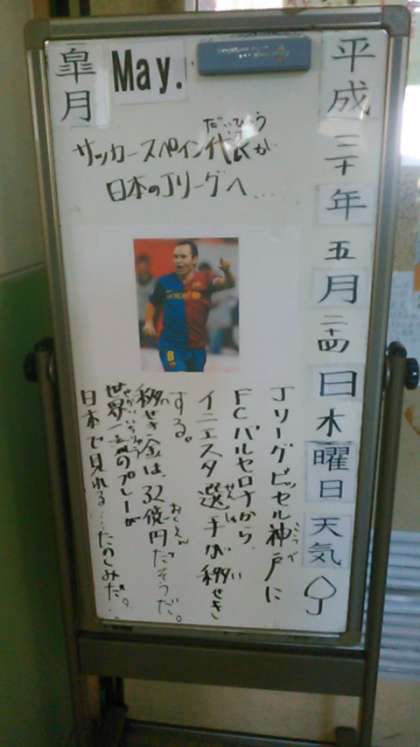 平成三十年五月二十四日木曜日天気
皐月
May.
サッカースペイン代表が
だいひょう
日本のJリーグへ....
Jリーグビッセル神戸に
こうべ
FCバルセロナから、
イニエスタ選手が移せき
せんしゅ
い
する。
移せき金は、32億円だそうだ。
おくえん
世界一のプレーが
せかいいち
日本で見れる....たのしみだ。...
unicef
8